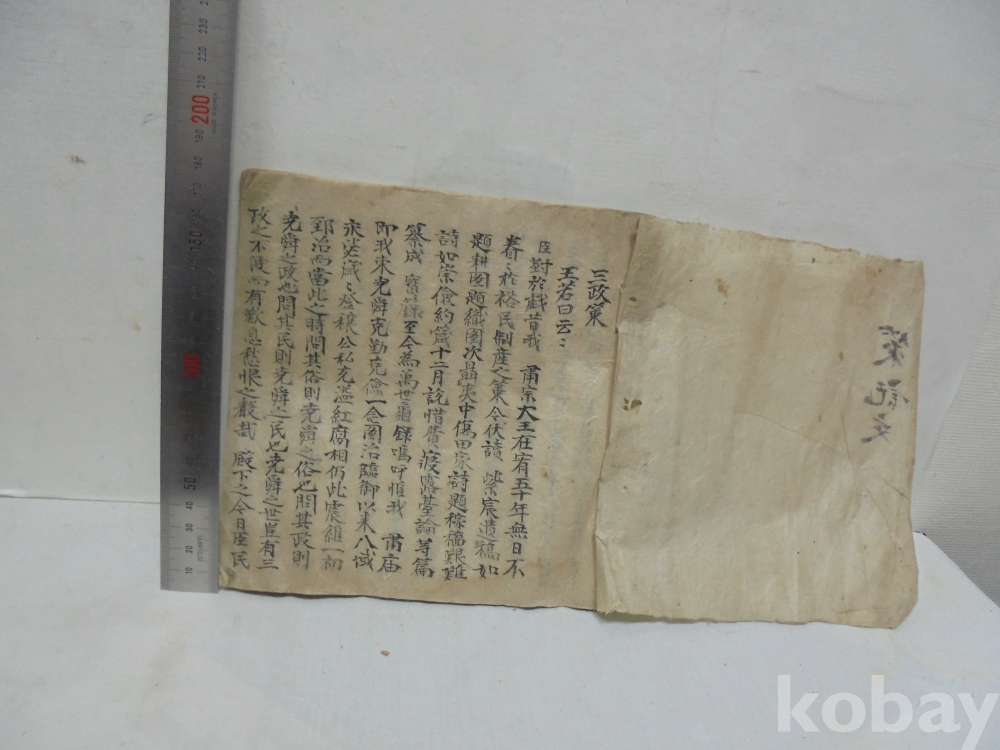 策記文
三政策
王若曰云〻
臣對於戱昔我 肅宗大王在宥五十年無日不
眷〻於裕民制産之策今伏讀 紫宸遺稿如
題耕圖題織圖次聶夷中傷田家詩題稼穡艱難
詩如崇儉約箴十二月說惜費 露臺論等篇
纂成 寶錄至今為萬世龜錄嗚呼惟我 肅庙
即我東堯舜克勤克儉一念圖治臨御以來八域
歲〻登穰公私充溢紅腐相仍此震維一初
郅治而當此之時問其俗則堯舜之俗也問其政則
堯舜之政也問其民則堯舜之民也堯舜之世豈有三
政之不健而有歎息愁恨之聲哉 殿下之今日臣民
50
100
150
200
kobay